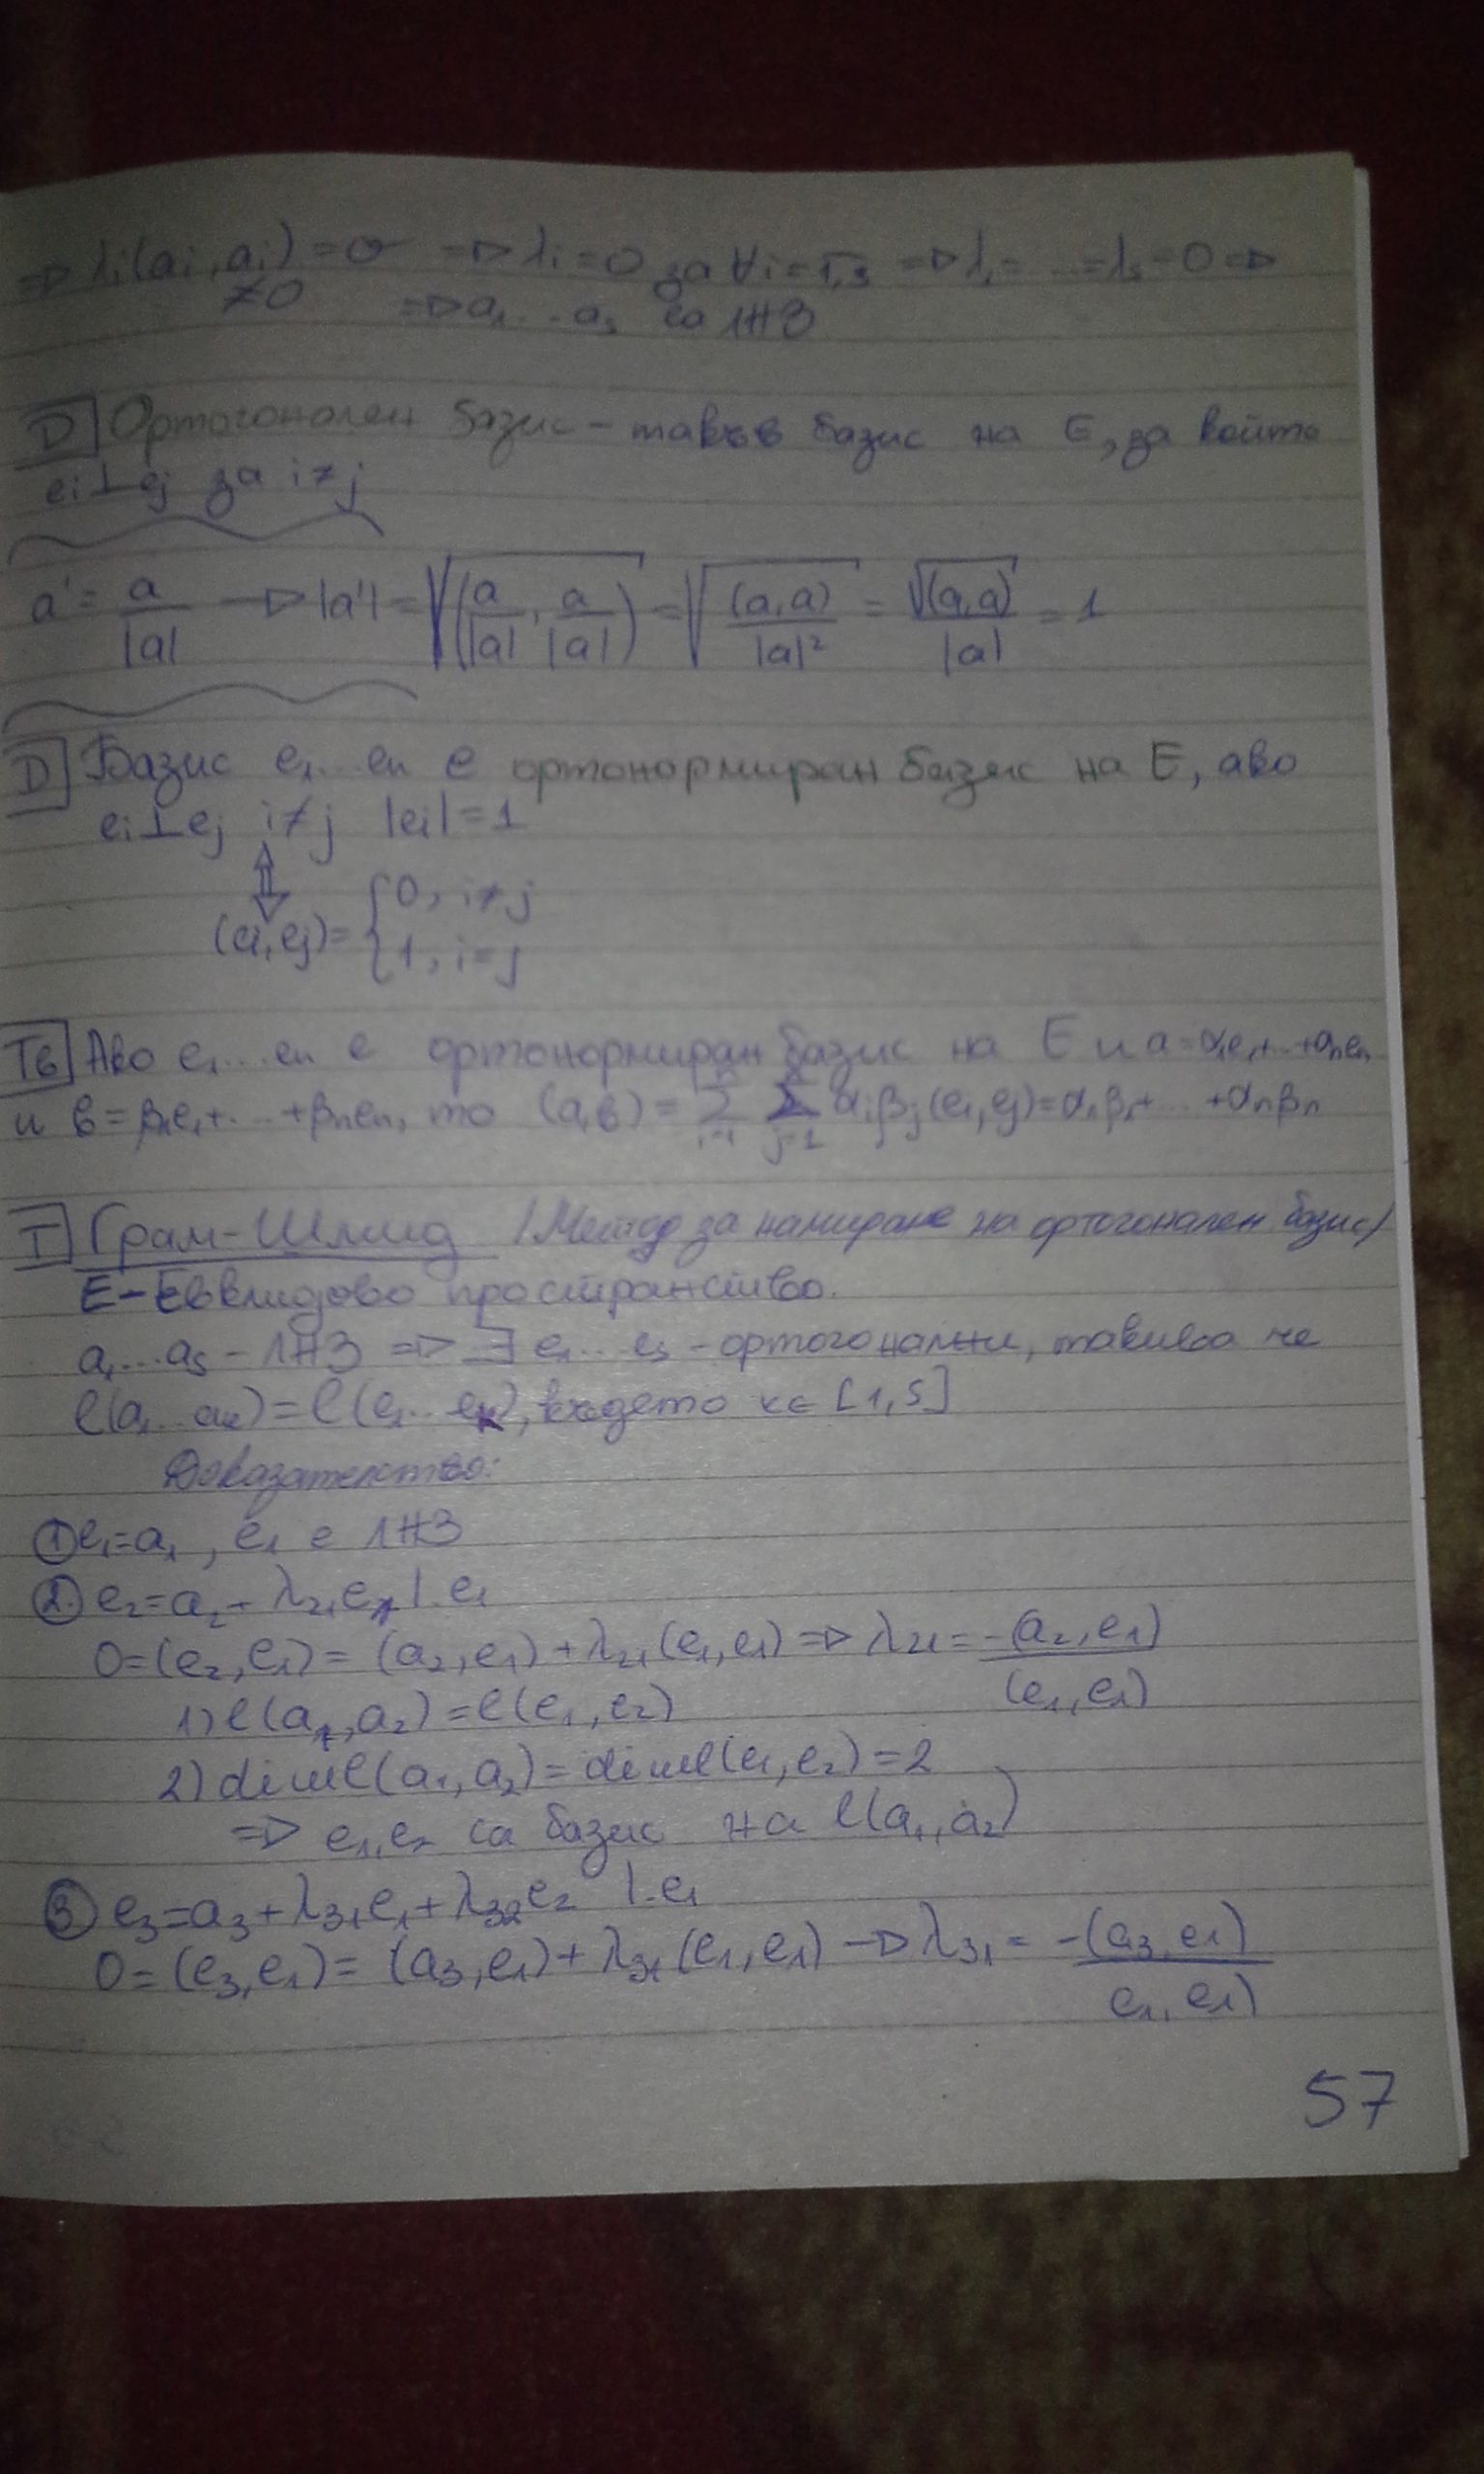 => λi(ai, ai) = 0 => λi = 0 за ∀i = 1,s => λ1 = ... = λs = 0 =>
≠0 => a1 ... as са ЛНЗ
D Ортогонален базис - такъв базис на E, за който
ei ⊥ ej за i ≠ j
a' = a/|a| -> |a'| = √(a/|a|, a/|a|) = √((a,a)/|a|²) = √(a,a)/|a| = 1
D Базис e1...en е ортонормиран базис на E, ако
ei ⊥ ej i ≠ j |ei| = 1
⇕
(ei, ej) = { 0, i ≠ j
1, i = j
Тв Ако e1...en е ортонормиран базис на E и a = α1e1+...+αnen
и b = β1e1+...+βnen, то (a,b) = Σ i=1 n Σ j=1 n αiβj(ei, ej) = α1β1+...+αnβn
Т Грам-Шмид /Метод за намиране на ортогонален базис/
E - Евклидово пространство.
a1...as - ЛНЗ => ∃ e1...es - ортогонални, такива че
l(a1...ak) = l(e1...ek), където k ∈ [1,s]
Доказателство:
① e1 = a1, e1 е ЛНЗ
② e2 = a2 + λ21e1 |.e1
0 = (e2, e1) = (a2, e1) + λ21(e1, e1) => λ21 = -(a2, e1)/(e1, e1)
1) l(a1, a2) = l(e1, e2)
2) dim l(a1, a2) = dim l(e1, e2) = 2
=> e1, e2 са базис на l(a1, a2)
③ e3 = a3 + λ31e1 + λ32e2 |.e1
0 = (e3, e1) = (a3, e1) + λ31(e1, e1) -> λ31 = -(a3, e1)/e1, e1)
57